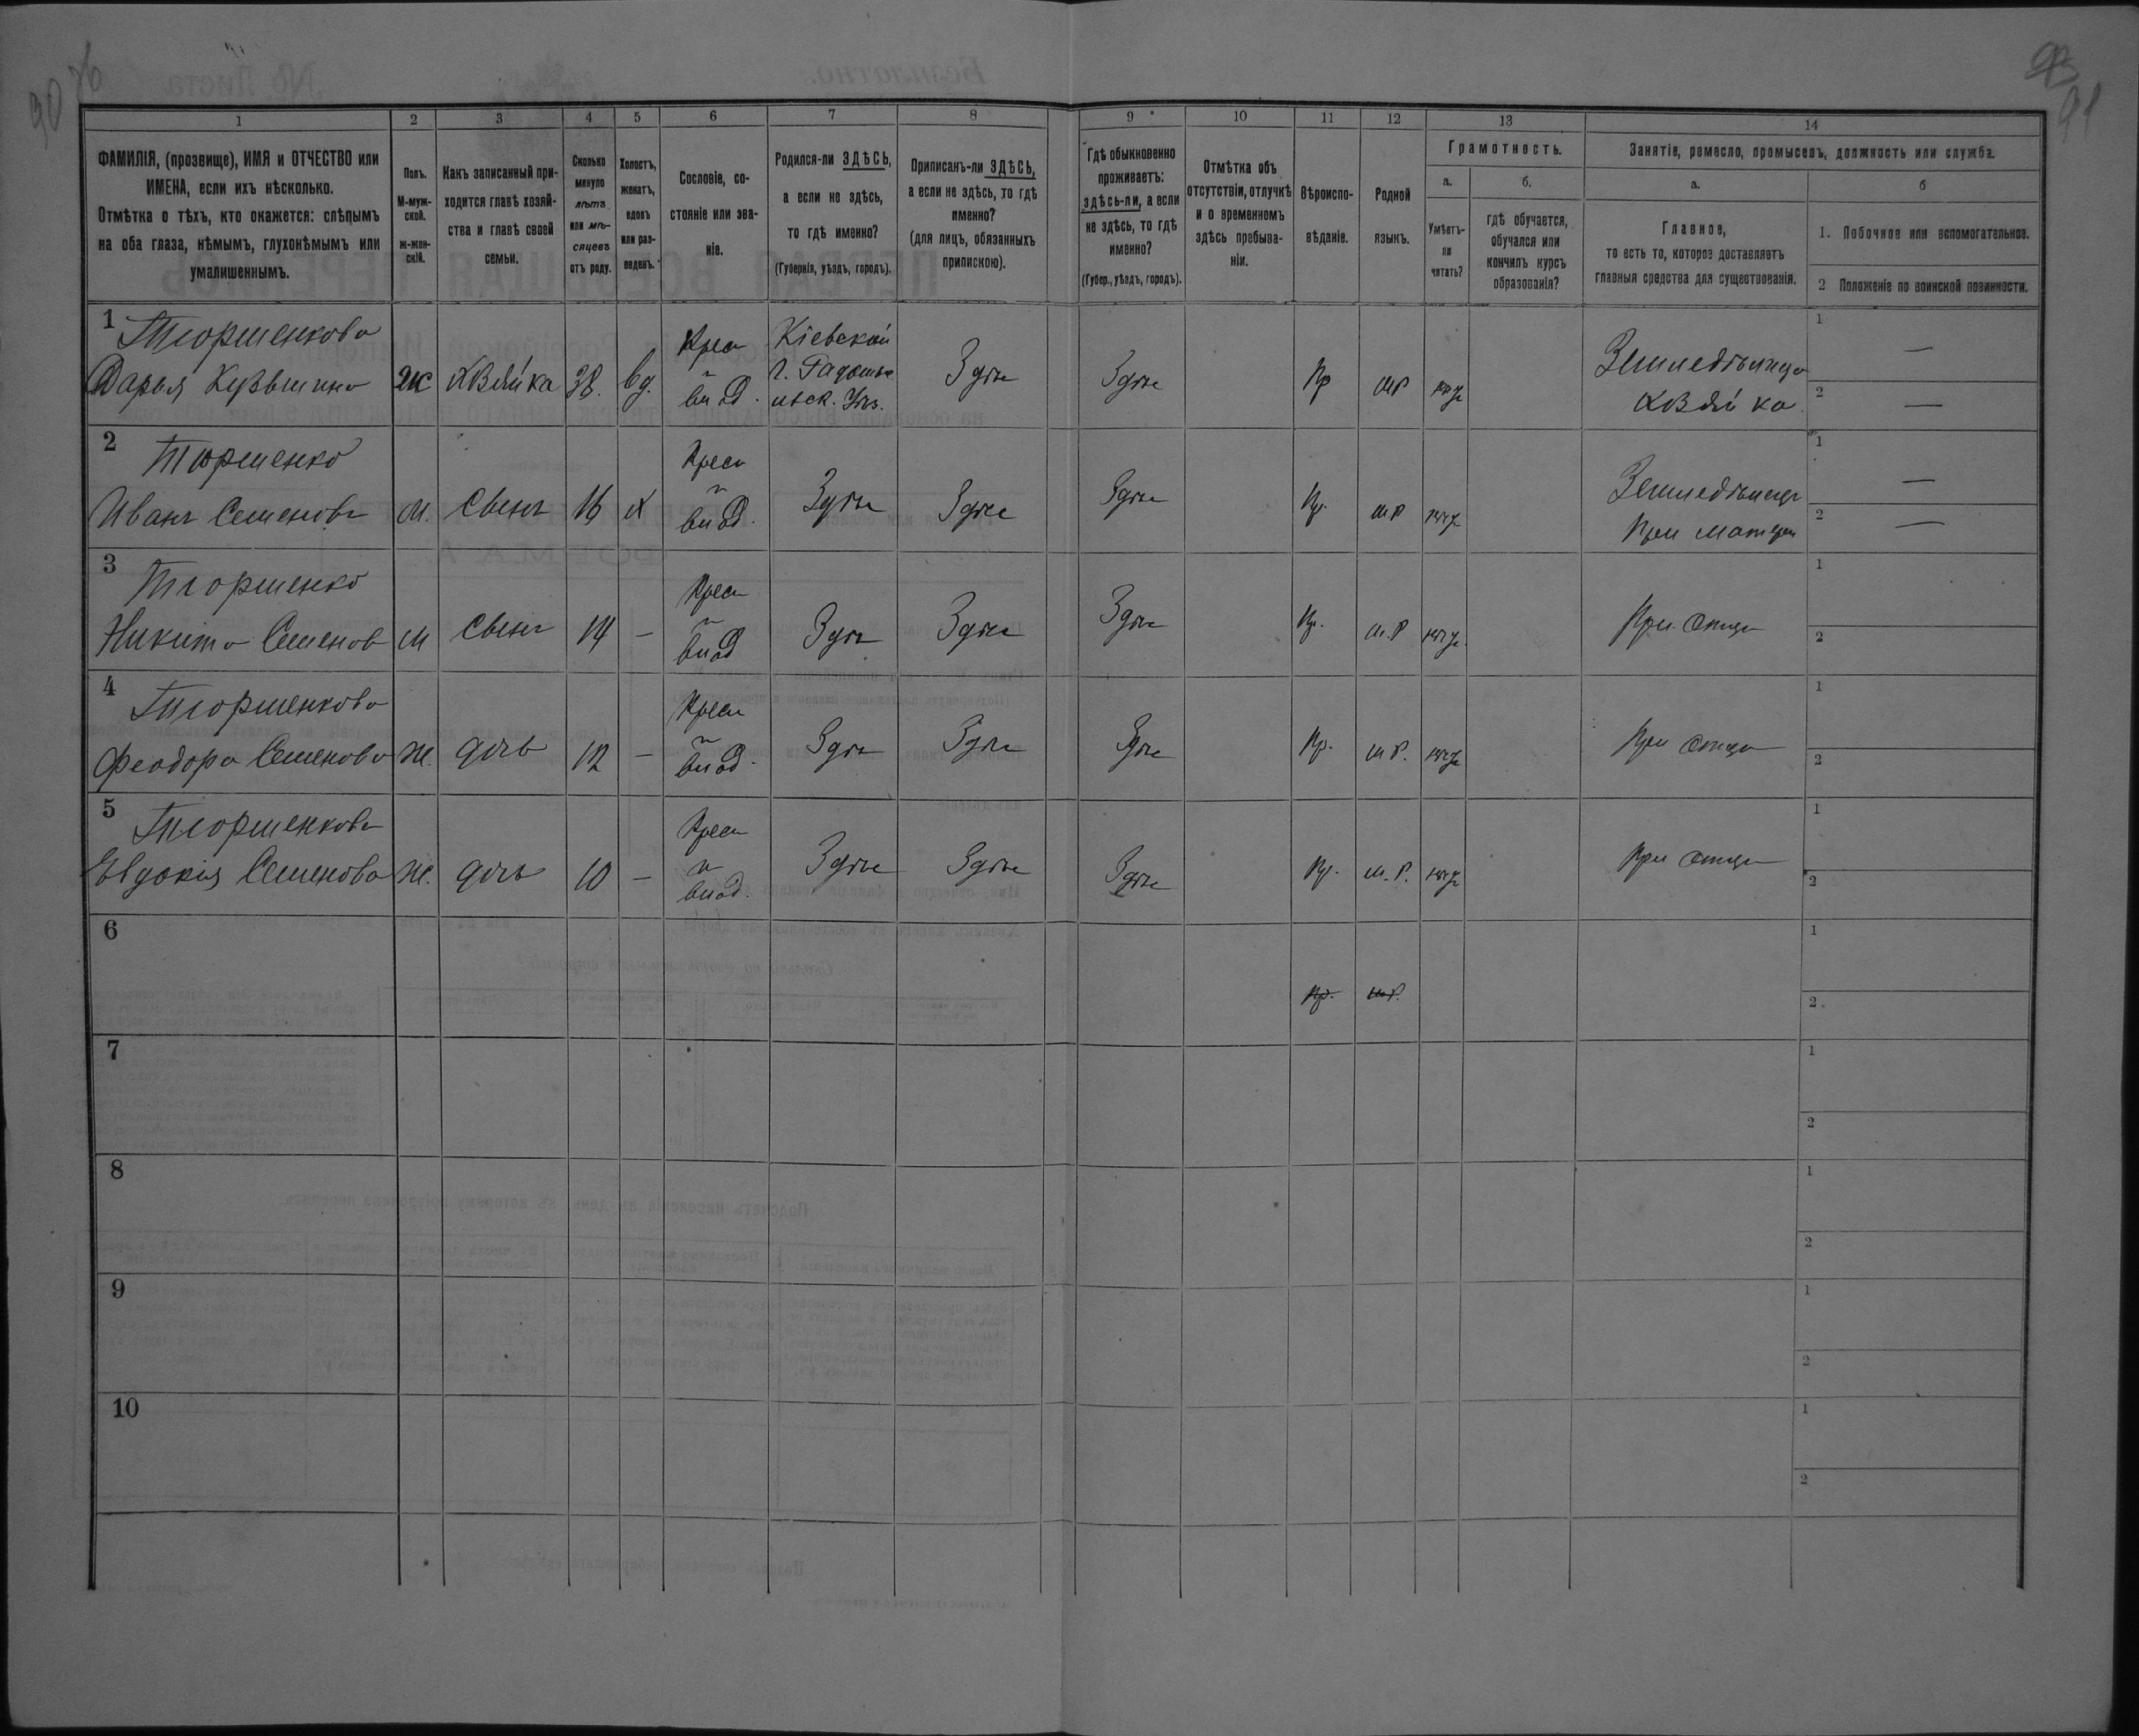 90
91
1
2
3
4
5
6
7
8
9
10
11
12
13
14
ФАМИЛІЯ, (прозвище), ИМЯ и ОТЧЕСТВО или
ИМЕНА, если ихъ нѣсколько.
Отмѣтка о тѣхъ, кто окажется: слѣпымъ
на оба глаза, нѣмымъ, глухонѣмымъ или
умалишеннымъ.
Полъ.
М-муж-
ской.
ж-жен-
скій.
Какъ записанный при-
ходится главѣ хозяй-
ства и главѣ своей
семьи.
Сколько
минуло
лѣтъ
или мѣ-
сяцевъ
отъ роду.
Холостъ,
женатъ,
вдовъ
или раз-
веденъ.
Сословіе, со-
стояніе или зва-
ніе.
Родился-ли ЗДѢСЬ,
а если не здѣсь,
то гдѣ именно?
(Губернія, уѣздъ, городъ).
Приписанъ-ли ЗДѢСЬ,
а если не здѣсь, то гдѣ
именно?
(для лицъ, обязанныхъ
припискою).
Гдѣ обыкновенно
проживаетъ:
здѣсь-ли, а если
не здѣсь, то гдѣ
именно?
(Губер., уѣздъ, городъ).
Отмѣтка объ
отсутствіи, отлучкѣ
и о временномъ
здѣсь пребыва-
ніи.
Вѣроиспо-
вѣданіе.
Родной
языкъ.
Грамотность.
а.
Умѣетъ-
ли
читать?
б.
гдѣ обучается,
обучался или
кончилъ курсъ
образованія?
Занятіе, ремесло, промыселъ, должность или служба.
а.
Главное,
то есть то, которое доставляетъ
главныя средства для существованія.
б
1. Побочное или вспомогательное.
2 Положеніе по воинской повинности.
1
Тюрменкова
Дарья Кузьмина
ж
хозяйка
38.
вд.
Крес
Кіевской
г. Радомы
ысск. Уѣз.
Здѣсь
Здѣсь
Пр
мР
Земледѣлица
хозяйка
1 —
2 —
2
Тюрменко
Иванъ Семеновъ
М.
Сынъ
16
Х
Крес
Здѣсь
Здѣсь
Здѣсь
Пр.
мР
Земледѣлецъ
При матери
1 —
2 —
3
Тюрменко
Никита Семенов
М
Сынъ
14
—
Крес
Здѣсь
Здѣсь
Здѣсь
Пр.
м.Р
При отцѣ
1
2
4
Тюрменкова
Феодора Семенова
Ж.
дочь
12
—
Крес
Здѣсь
Здѣсь
Здѣсь
Пр.
мР.
При отцѣ
1
2
5
Тюрменкова
Евдокія Семенова
Ж.
дочь
10
—
Крес
Здѣсь
Здѣсь
Здѣсь
Пр.
м.Р.
При отцѣ
1
2
6
Пр.
мР.
1
2
7
1
2
8
1
2
9
1
2
10
1
2